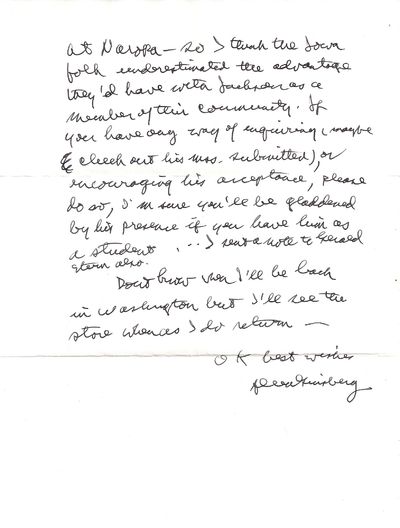 at Naropa — so I think the Iowa
folk underestimated the advantage
they'd have with Jackson as a
member of their community. If
you have any way of inquiring (maybe
check out his mss. submitted), or
encouraging his acceptance, please
do so, I'm sure you'll be gladdened
by his presence if you have him as
a student. ... I sent a note to Gerald
Stern also.
Don't know when I'll be back
in Washington but I'll see the
store whenever I do return —
OK best wishes
Allen Ginsberg